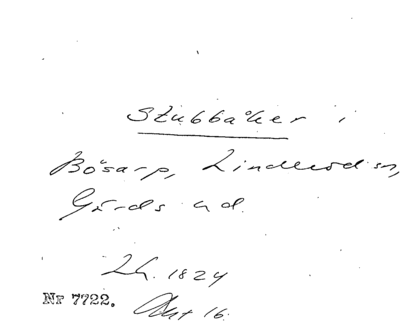 Stubbåker i
Bösarp, Linderöd sn,
Gärds hd.
Lh. 1824
Nr 7722. Akt 16.